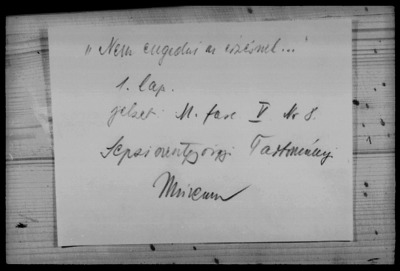 „Nem engedni az ... "
1. lap.
jelzet M. fasc V No 8.
Sepsiszentgyörgyi Tartományi
Múzeum